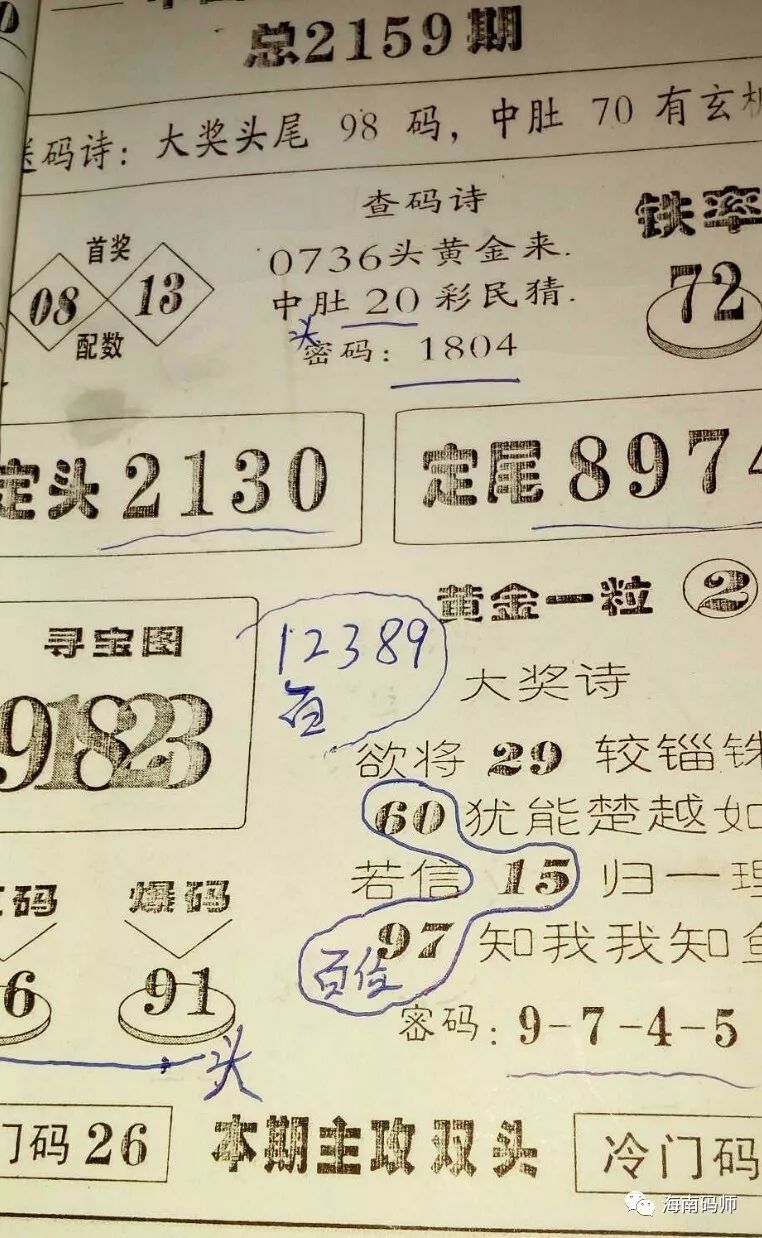 总2159期
送码诗：大奖头尾 98 码，中肚 70 有玄机
首奖
08 13
配数
查码诗
0736头黄金来.
中肚 20 彩民猜.
头
密码：1804
铁率
72
定头 2130
定尾 8974
寻宝图
91823
12389
百
黄金一粒 2
大奖诗
欲将 29 较锱铢
60 犹能楚越如
若信 15 归一理
97 知我我知鱼
百位
密码：9-7-4-5
码
6
爆码
91
头
门码 26
本期主攻双头
冷门码
海南码师